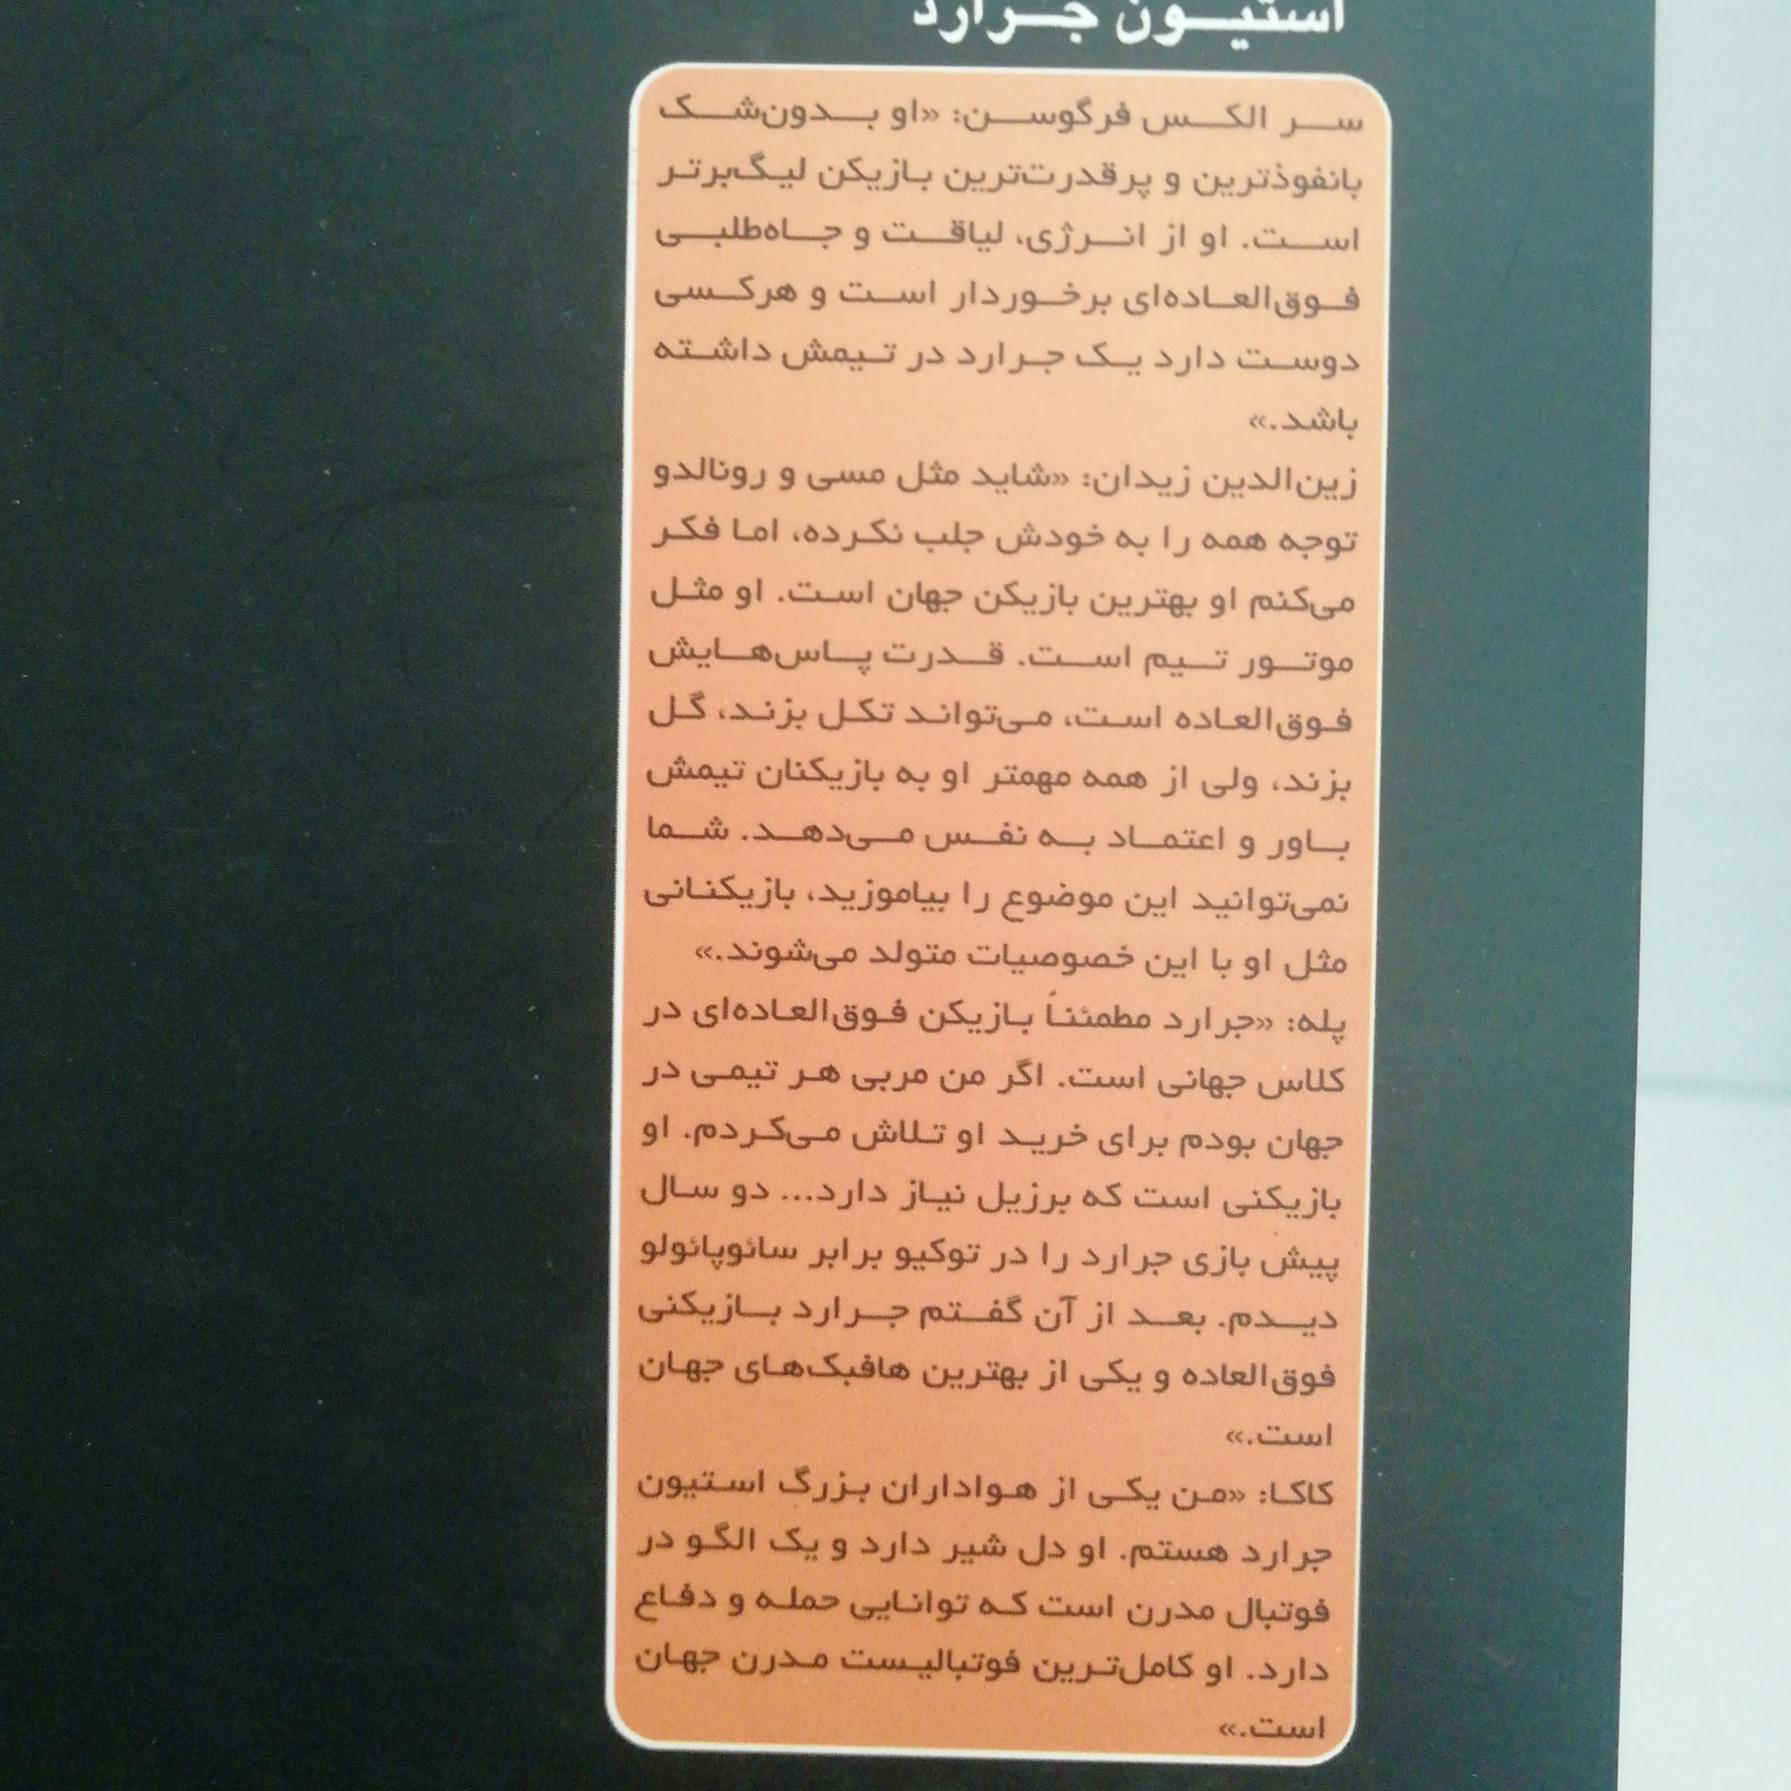 استیون جرارد
سر الکس فرگوسن: «او بدون‌شک
بانفوذترین و پرقدرت‌ترین بازیکن لیگ‌برتر
است. او از انرژی، لیاقت و جاه‌طلبی
فوق‌العاده‌ای برخوردار است و هرکسی
دوست دارد یک جرارد در تیمش داشته
باشد.»
زین‌الدین زیدان: «شاید مثل مسی و رونالدو
توجه همه را به خودش جلب نکرده، اما فکر
می‌کنم او بهترین بازیکن جهان است. او مثل
موتور تیم است. قدرت پاس‌هایش
فوق‌العاده است، می‌تواند تکل بزند، گل
بزند، ولی از همه مهمتر او به بازیکنان تیمش
باور و اعتماد به نفس می‌دهد. شما
نمی‌توانید این موضوع را بیاموزید، بازیکنانی
مثل او با این خصوصیات متولد می‌شوند.»
پله: «جرارد مطمئناً بازیکن فوق‌العاده‌ای در
کلاس جهانی است. اگر من مربی هر تیمی در
جهان بودم برای خرید او تلاش می‌کردم. او
بازیکنی است که برزیل نیاز دارد... دو سال
پیش بازی جرارد را در توکیو برابر سائوپائولو
دیدم. بعد از آن گفتم جرارد بازیکنی
فوق‌العاده و یکی از بهترین هافبک‌های جهان
است.»
کاکا: «من یکی از هواداران بزرگ استیون
جرارد هستم. او دل شیر دارد و یک الگو در
فوتبال مدرن است که توانایی حمله و دفاع
دارد. او کامل‌ترین فوتبالیست مدرن جهان
است.»